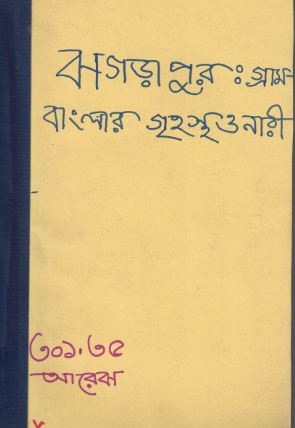 ঝগড়াপুর : গ্রাম-
বাংলার গৃহস্থ ও নারী
৩০১.৩৫
আরেঝ